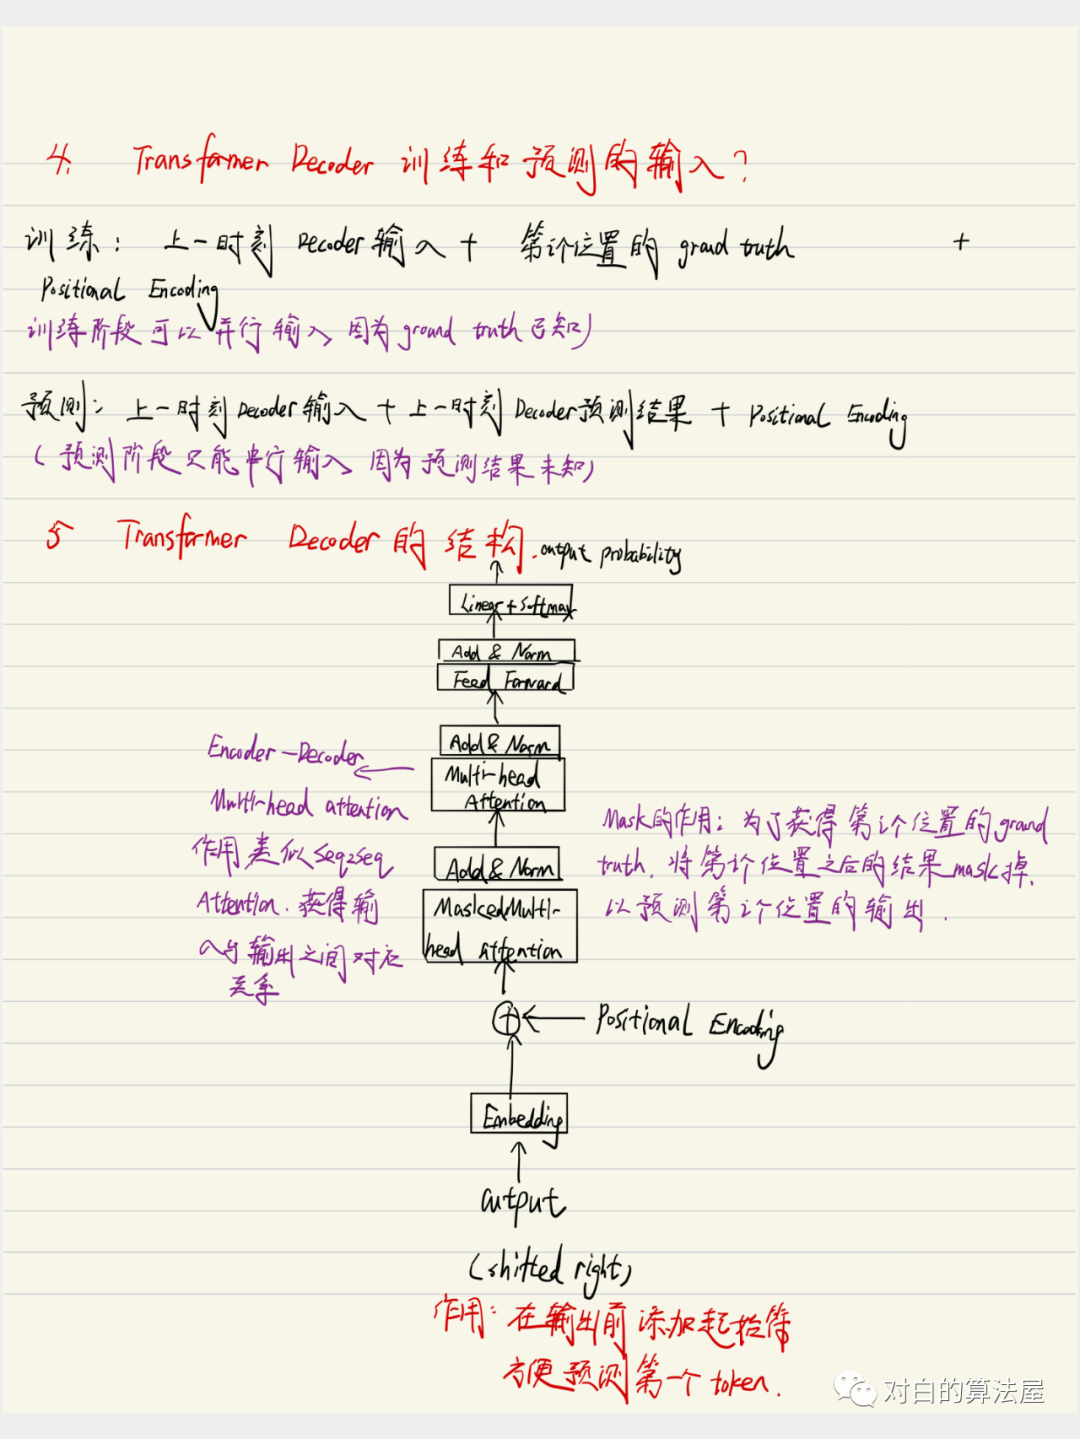 4. Transformer Decoder 训练和预测的输入?
训练: 上一时刻 Decoder输入 + 第i个位置的 ground truth +
Positional Encoding
训练阶段可以并行输入, 因为ground truth已知)
预测: 上一时刻Decoder输入 + 上一时刻Decoder预测结果 + Positional Encoding
(预测阶段只能串行输入, 因为预测结果未知)
5 Transformer Decoder的结构.
output probability
Linear + Softmax
Add & Norm
Feed Forward
Add & Norm
Multi-head
Attention
Encoder-Decoder
Multi-head attention
作用类似seq2seq
Attention. 获得输
入与输出之间对应
关系
Add & Norm
Masked Multi-
head attention
Mask的作用: 为了获得第i个位置的ground
truth, 将第i个位置之后的结果mask掉,
以预测第i个位置的输出.
Positional Encoding
Embedding
output
(shifted right)
作用: 在输出前添加起始符
方便预测第一个token.
对白的算法屋